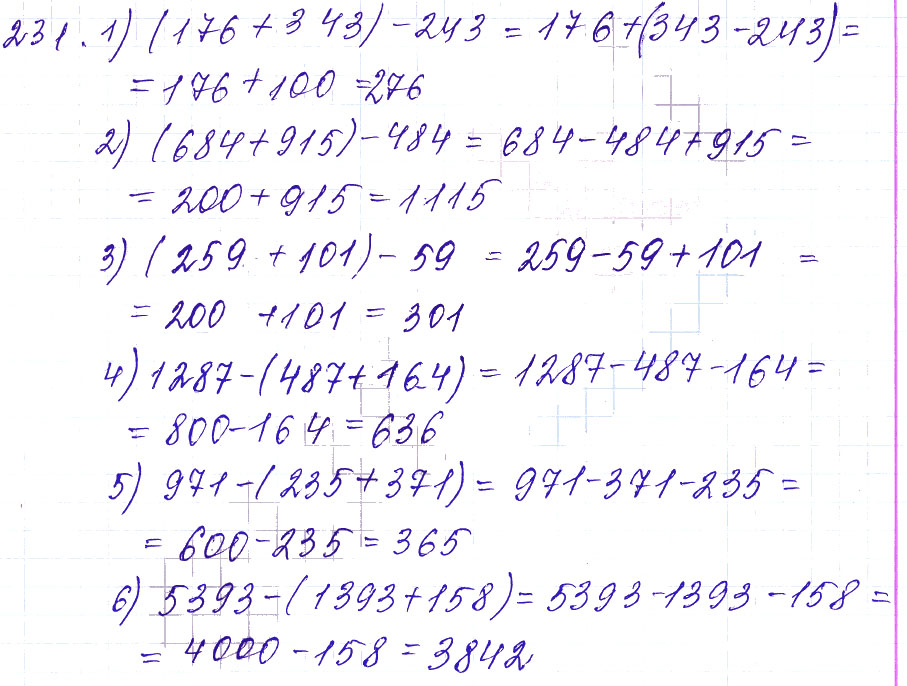 231. 1) (176 + 343) - 243 = 176 + (343 - 243) =
= 176 + 100 = 276
2) (684 + 915) - 484 = 684 - 484 + 915 =
= 200 + 915 = 1115
3) (259 + 101) - 59 = 259 - 59 + 101 =
= 200 + 101 = 301
4) 1287 - (487 + 164) = 1287 - 487 - 164 =
= 800 - 164 = 636
5) 971 - (235 + 371) = 971 - 371 - 235 =
= 600 - 235 = 365
6) 5393 - (1393 + 158) = 5393 - 1393 - 158 =
= 4000 - 158 = 3842